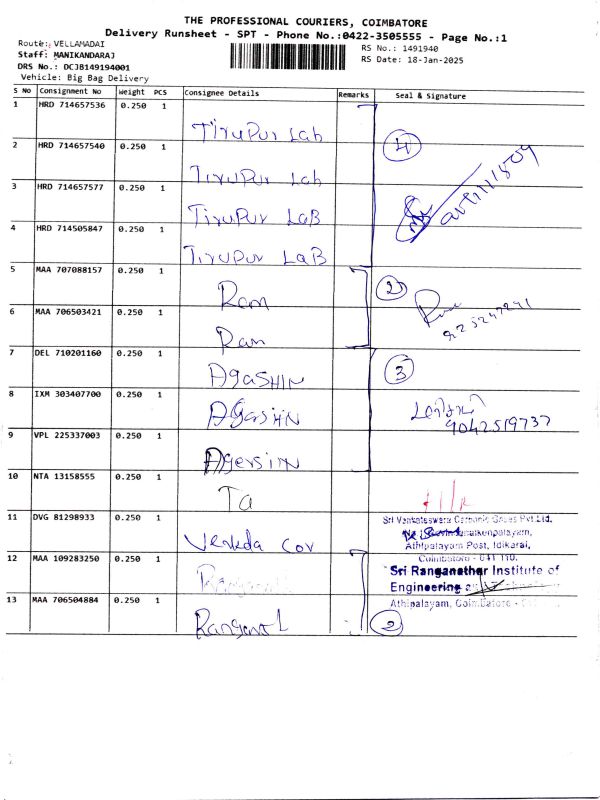 THE PROFESSIONAL COURIERS, COIMBATORE
Delivery Runsheet - SPT - Phone No.:0422-3505555 - Page No.:1
Route: VELLAMADAI
RS No.: 1491940
Staff: MANIKANDARAJ
RS Date: 18-Jan-2025
DRS No.: DCJB149194001
Vehicle: Big Bag Delivery
S No Consignment No Weight PCS Consignee Details Remarks Seal & Signature
1 HRD 714657536 0.250 1 Tirupur Lab
4
2 HRD 714657540 0.250 1 Tirupur Lab
3 HRD 714657577 0.250 1 Tirupur LaB
4 HRD 714505847 0.250 1 Tirupur LaB
5 MAA 707088157 0.250 1 Ram
2
6 MAA 706503421 0.250 1 Ram
7 DEL 710201160 0.250 1 AgaSHIN
3
8 IXM 303407700 0.250 1 AgasHIN
9042519737
9 VPL 225337003 0.250 1
10 NTA 13158555 0.250 1 Ta
11 DVG 81298933 0.250 1
Sri Venkateswara Carbonic Gases Pvt Ltd.
Athipalayam Post, Idikarai,
Coimbatore - 641 110.
12 MAA 109283250 0.250 1
Sri Ranganathar Institute of
Engineering
13 MAA 706504884 0.250 1
Athipalayam, Coimbatore -
2